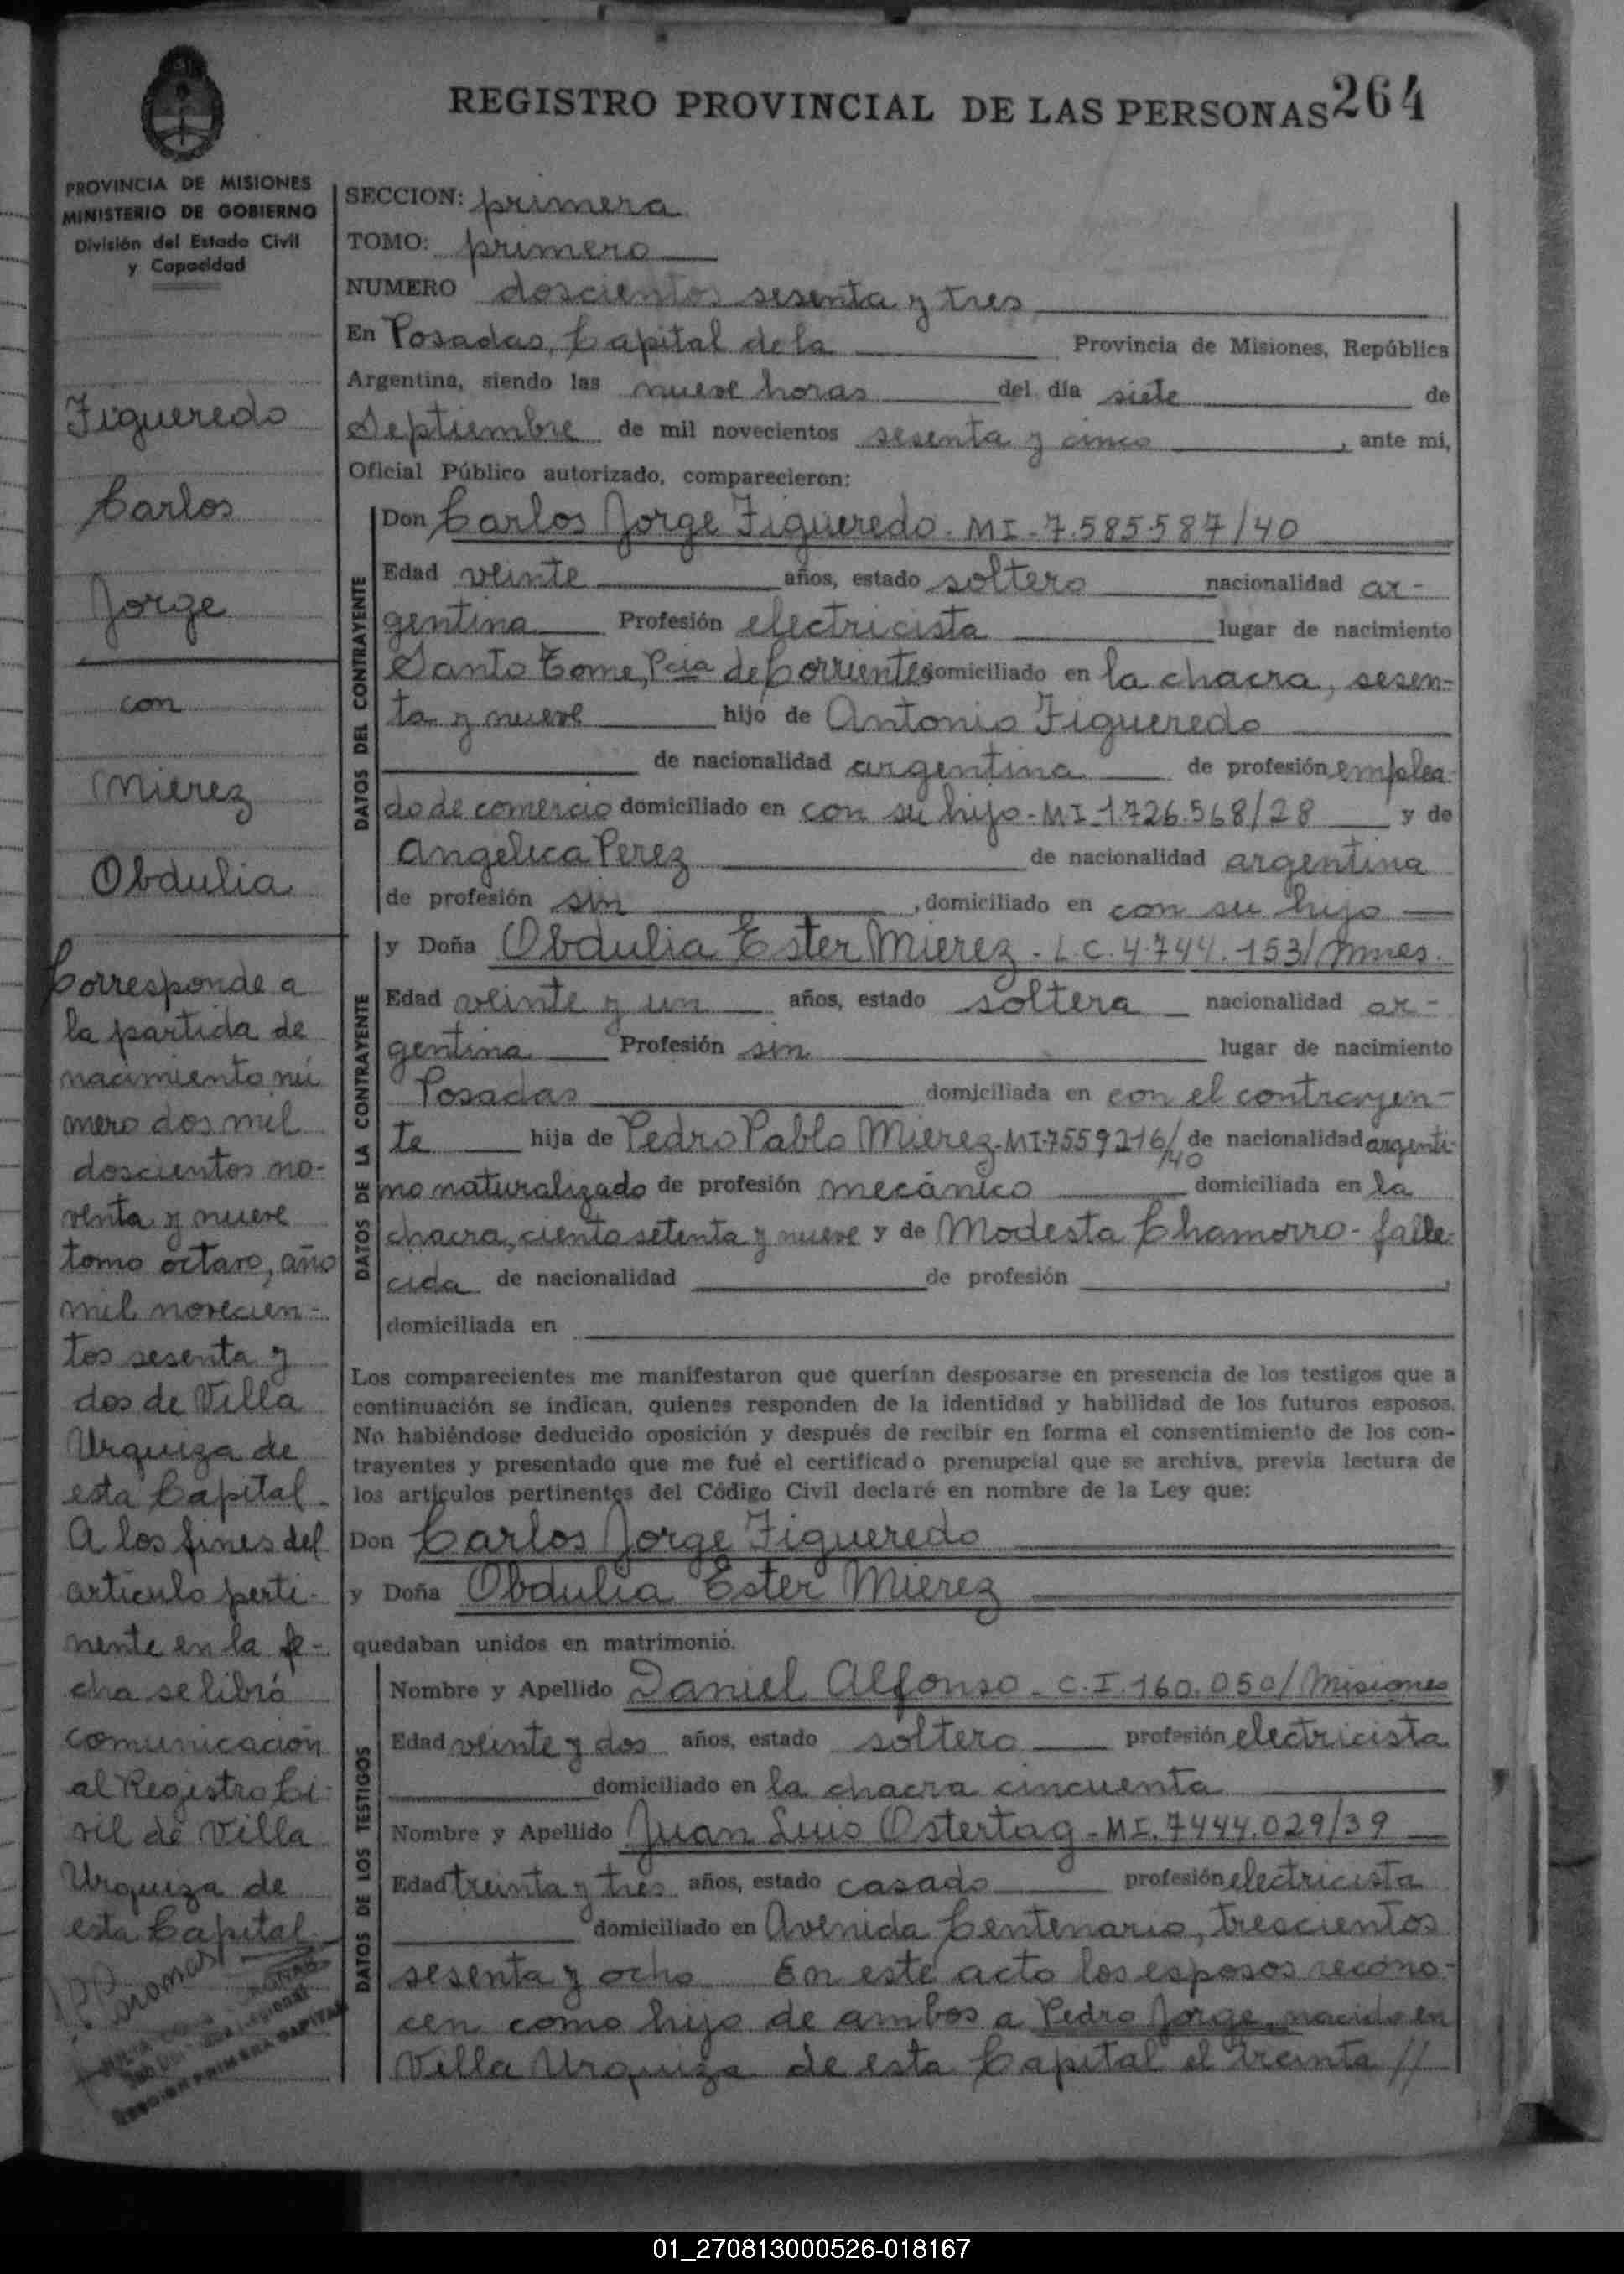 REGISTRO PROVINCIAL DE LAS PERSONAS 264
PROVINCIA DE MISIONES
MINISTERIO DE GOBIERNO
División del Estado Civil
y Capacidad
Figueredo
Carlos
Jorge
con
Mierez
Obdulia
Corresponde a
la partida de
nacimiento nú
mero dos mil
doscientos no-
venta y nueve
tomo octavo, año
mil novecien-
tos sesenta y
dos de Villa
Urquiza de
esta Capital.
A los fines del
artículo perti-
nente en la fe-
cha se libró
comunicación
al Registro Ci-
vil de Villa
Urquiza de
esta Capital
SECCION: primera
TOMO: primero
NUMERO doscientos sesenta y tres
En Posadas, Capital de la Provincia de Misiones, República
Argentina, siendo las nueve horas del día siete de
Septiembre de mil novecientos sesenta y cinco, ante mi,
Oficial Público autorizado, comparecieron:
DATOS DEL CONTRAYENTE
Don Carlos Jorge Figueredo. MI-7.585.587/40
Edad veinte años, estado soltero nacionalidad ar-
gentina Profesión electricista lugar de nacimiento
Santo Tome, Pcia de Corrientes domiciliado en la chacra, sesen-
ta y nueve hijo de Antonio Figueredo
de nacionalidad argentina de profesión emplea-
do de comercio domiciliado en con su hijo-MI-1.726.568/28 y de
Angélica Perez de nacionalidad argentina
de profesión sin, domiciliado en con su hijo
DATOS DE LA CONTRAYENTE
y Doña Obdulia Ester Mierez-L.C.4.744.153/Mnes.
Edad veinte y un años, estado soltera nacionalidad ar-
gentina Profesión sin lugar de nacimiento
Posadas domiciliada en con el contrayen-
te hija de Pedro Pablo Mierez-MI-7559216/40 de nacionalidad argenti-
no naturalizado de profesión mecánico domiciliada en la
chacra, ciento setenta y nueve y de Modesta Chamorro-falle-
cida de nacionalidad de profesión ,
domiciliada en
Los comparecientes me manifestaron que querían desposarse en presencia de los testigos que a
continuación se indican, quienes responden de la identidad y habilidad de los futuros esposos.
No habiéndose deducido oposición y después de recibir en forma el consentimiento de los con-
trayentes y presentado que me fué el certificado prenupcial que se archiva, previa lectura de
los artículos pertinentes del Código Civil declaré en nombre de la Ley que:
Don Carlos Jorge Figueredo
y Doña Obdulia Ester Mierez
quedaban unidos en matrimonio.
DATOS DE LOS TESTIGOS
Nombre y Apellido Daniel Alfonso-C.I.160.050/Misiones
Edad veinte y dos años, estado soltero profesión electricista
domiciliado en la chacra cincuenta
Nombre y Apellido Juan Luis Ostertag-MI.7444.029/39
Edad treinta y tres años, estado casado profesión electricista
domiciliado en Avenida Centenario, trescientos
sesenta y ocho En este acto los esposos recono-
cen como hijo de ambos a Pedro Jorge, nacido en
Villa Urquiza de esta Capital el treinta //
01_270813000526-018167